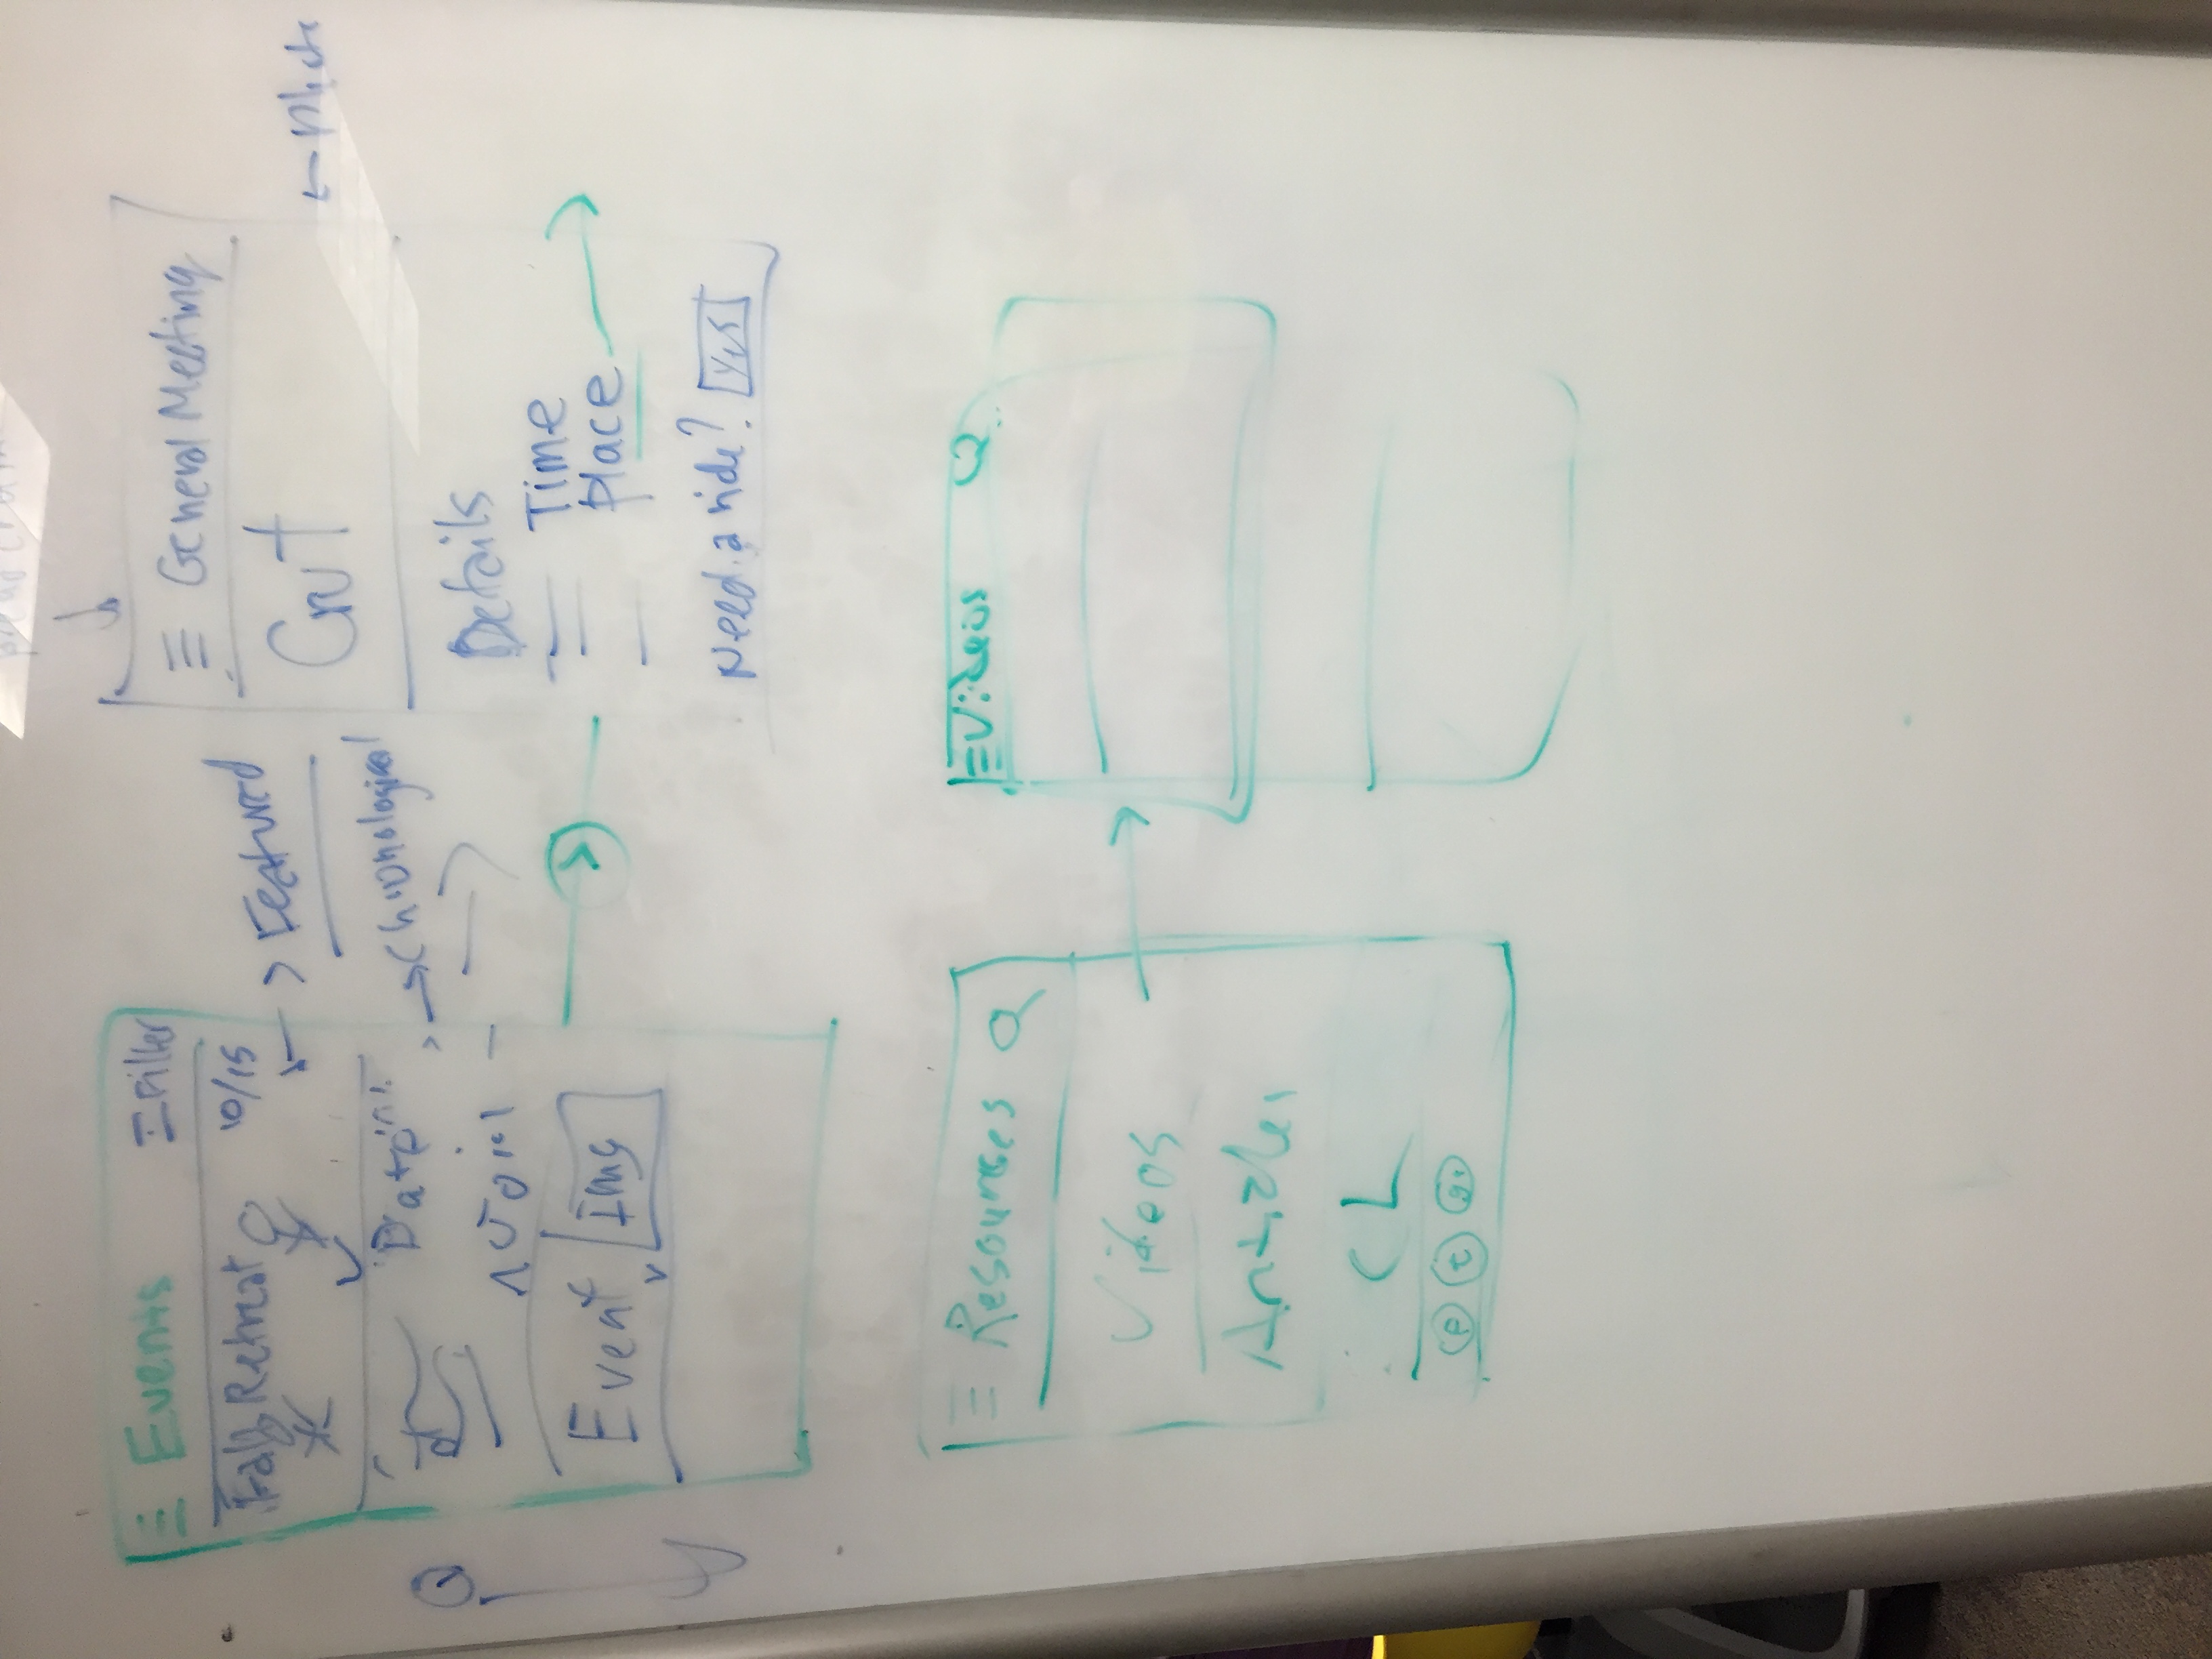 Events Filter
Fall Retreat 10/15
Featured
Date
Chronological
Event Img
General Meeting
Cru
Details
Time
Place
Need a ride? Yes
Resources
Videos
Articles
CL
f t g+
Videos